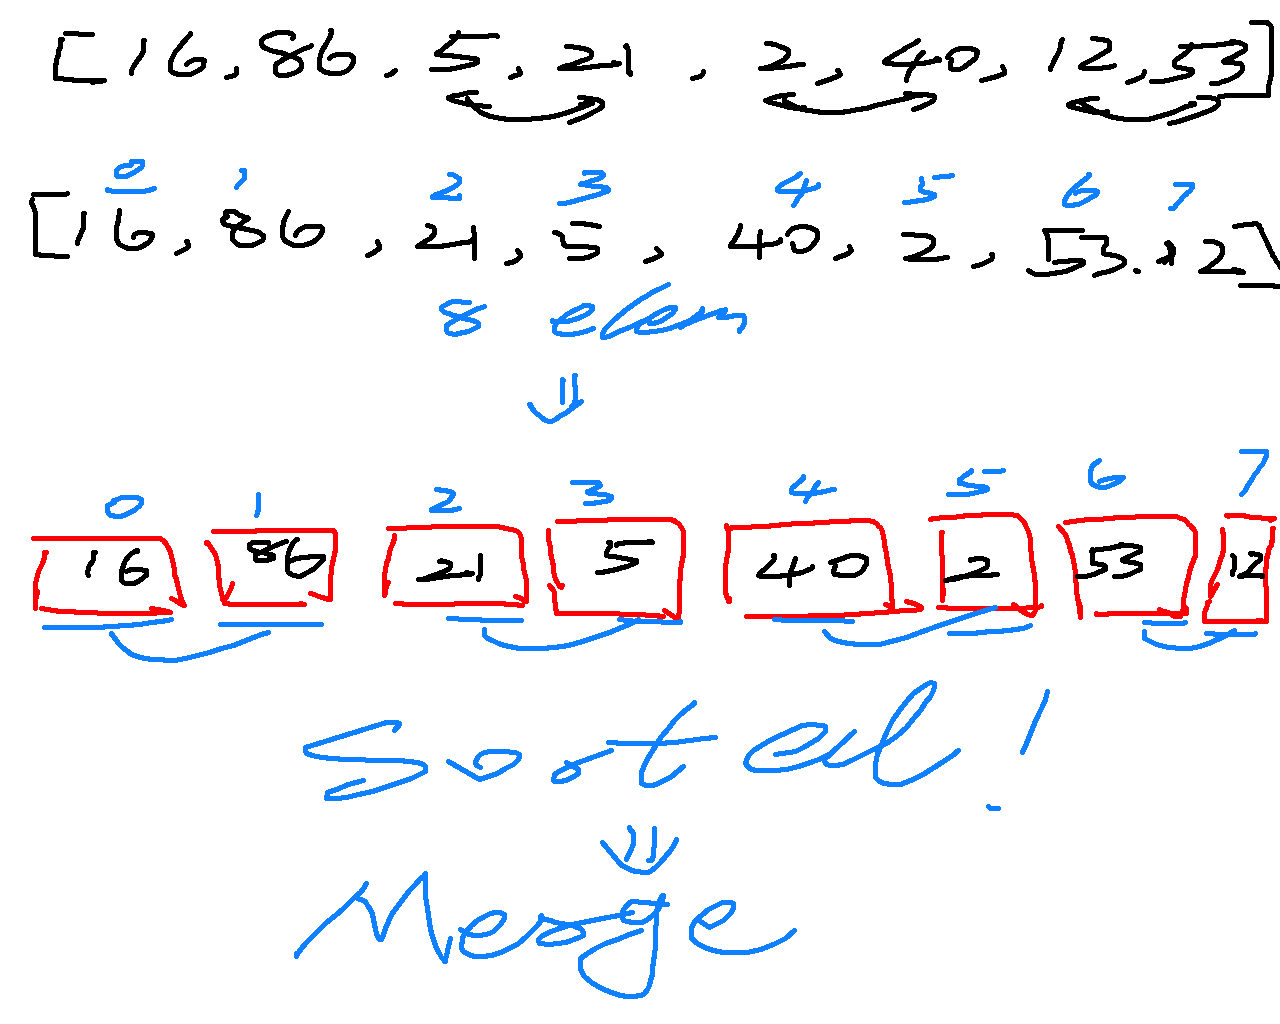 [16, 86, 5, 21, 2, 40, 12, 53]
0 1 2 3 4 5 6 7
[16, 86, 21, 5, 40, 2, 53, 12]
8 elem
0 1 2 3 4 5 6 7
16 86 21 5 40 2 53 12
Sorted!
Merge